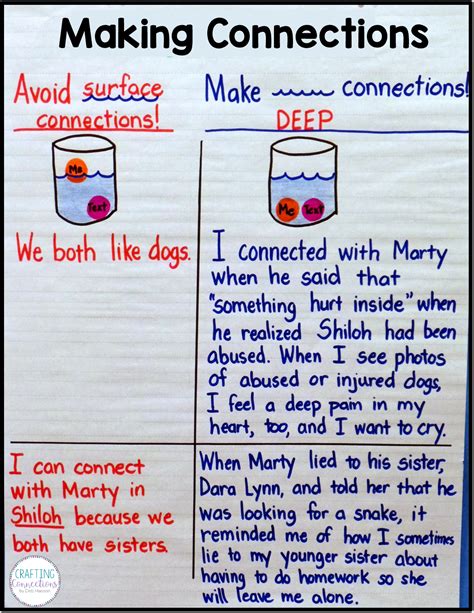 Making Connections
Avoid surface
connections!
Make connections!
DEEP
Me
Text
Me Text
We both like dogs.
I connected with Marty
when he said that
"something hurt inside" when
he realized Shiloh had been
abused. When I see photos
of abused or injured dogs,
I feel a deep pain in my
heart, too, and I want to cry.
I can connect
with Marty in
Shiloh because we
both have sisters.
When Marty lied to his sister,
Dara Lynn, and told her that he
was looking for a snake, it
reminded me of how I sometimes
lie to my younger sister about
having to do homework so she
will leave me alone.
CRAFTING
Connections
by Deb Hanson